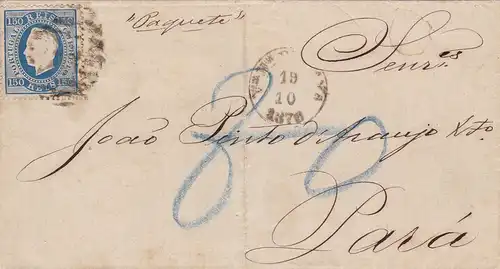 "Paquete"
150 REIS 150
PORTUGAL
150 REIS 150
Senr.es
19
10
1876
João Pinto d'Araujo & Ca.
Pará